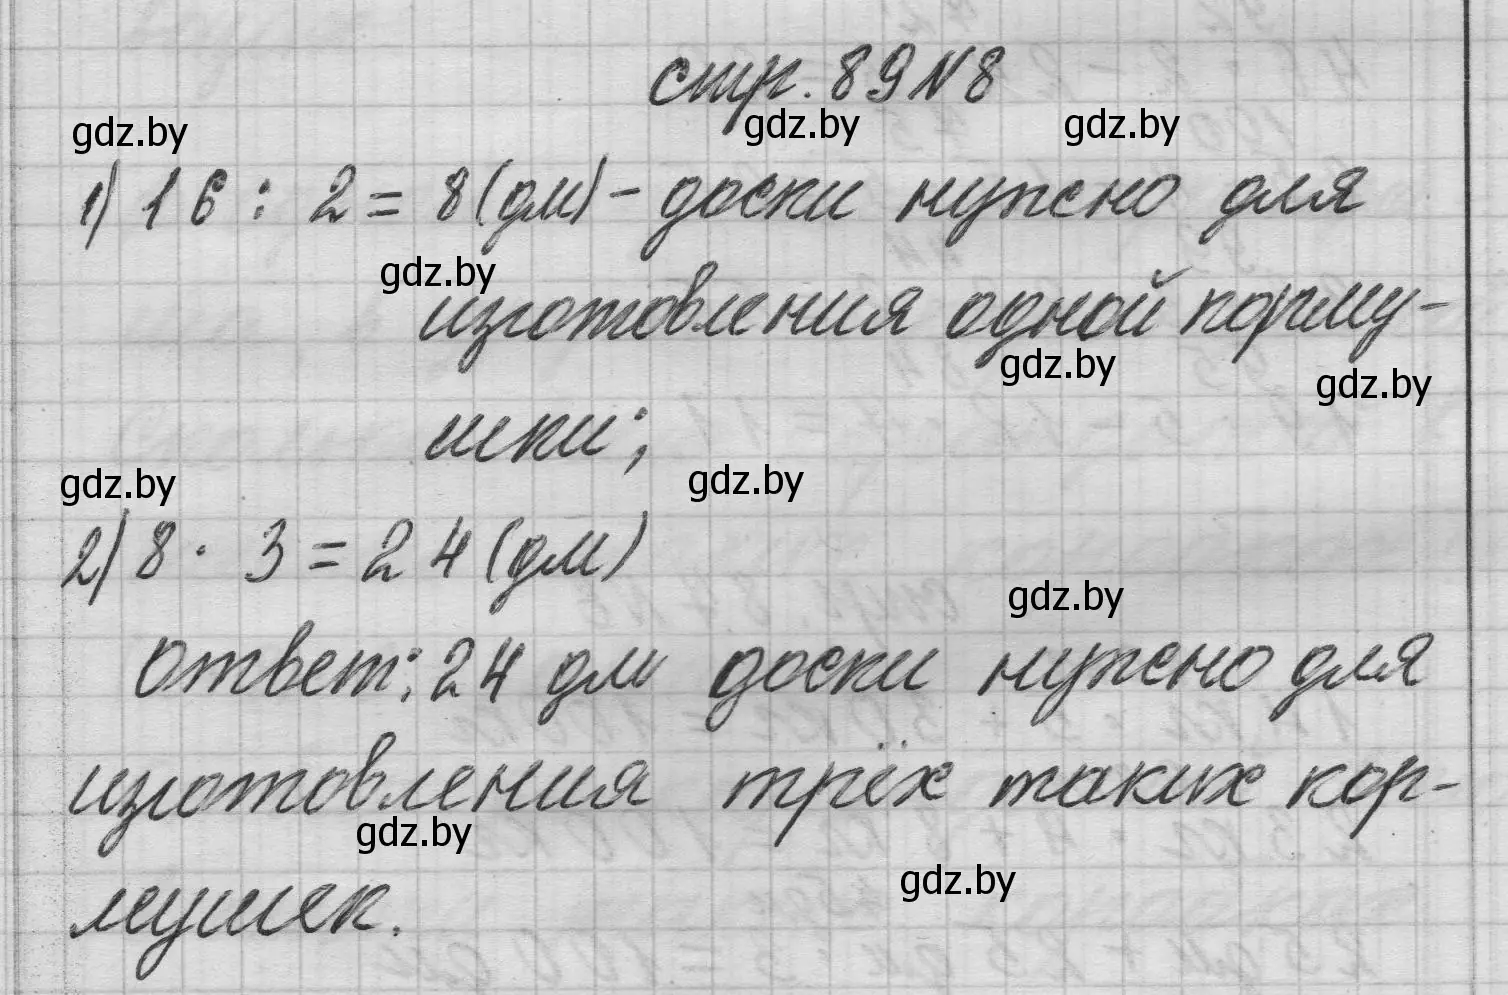 стр. 89 N 8
gdz.by gdz.by gdz.by
1) 16 : 2 = 8 (дм) - доски нужно для
gdz.by
изготовления одной корму-
gdz.by gdz.by
шки;
gdz.by gdz.by
2) 8 · 3 = 24 (дм)
gdz.by
Ответ: 24 дм доски нужно для
изготовления трёх таких кор-
gdz.by
gdz.by
мушек.